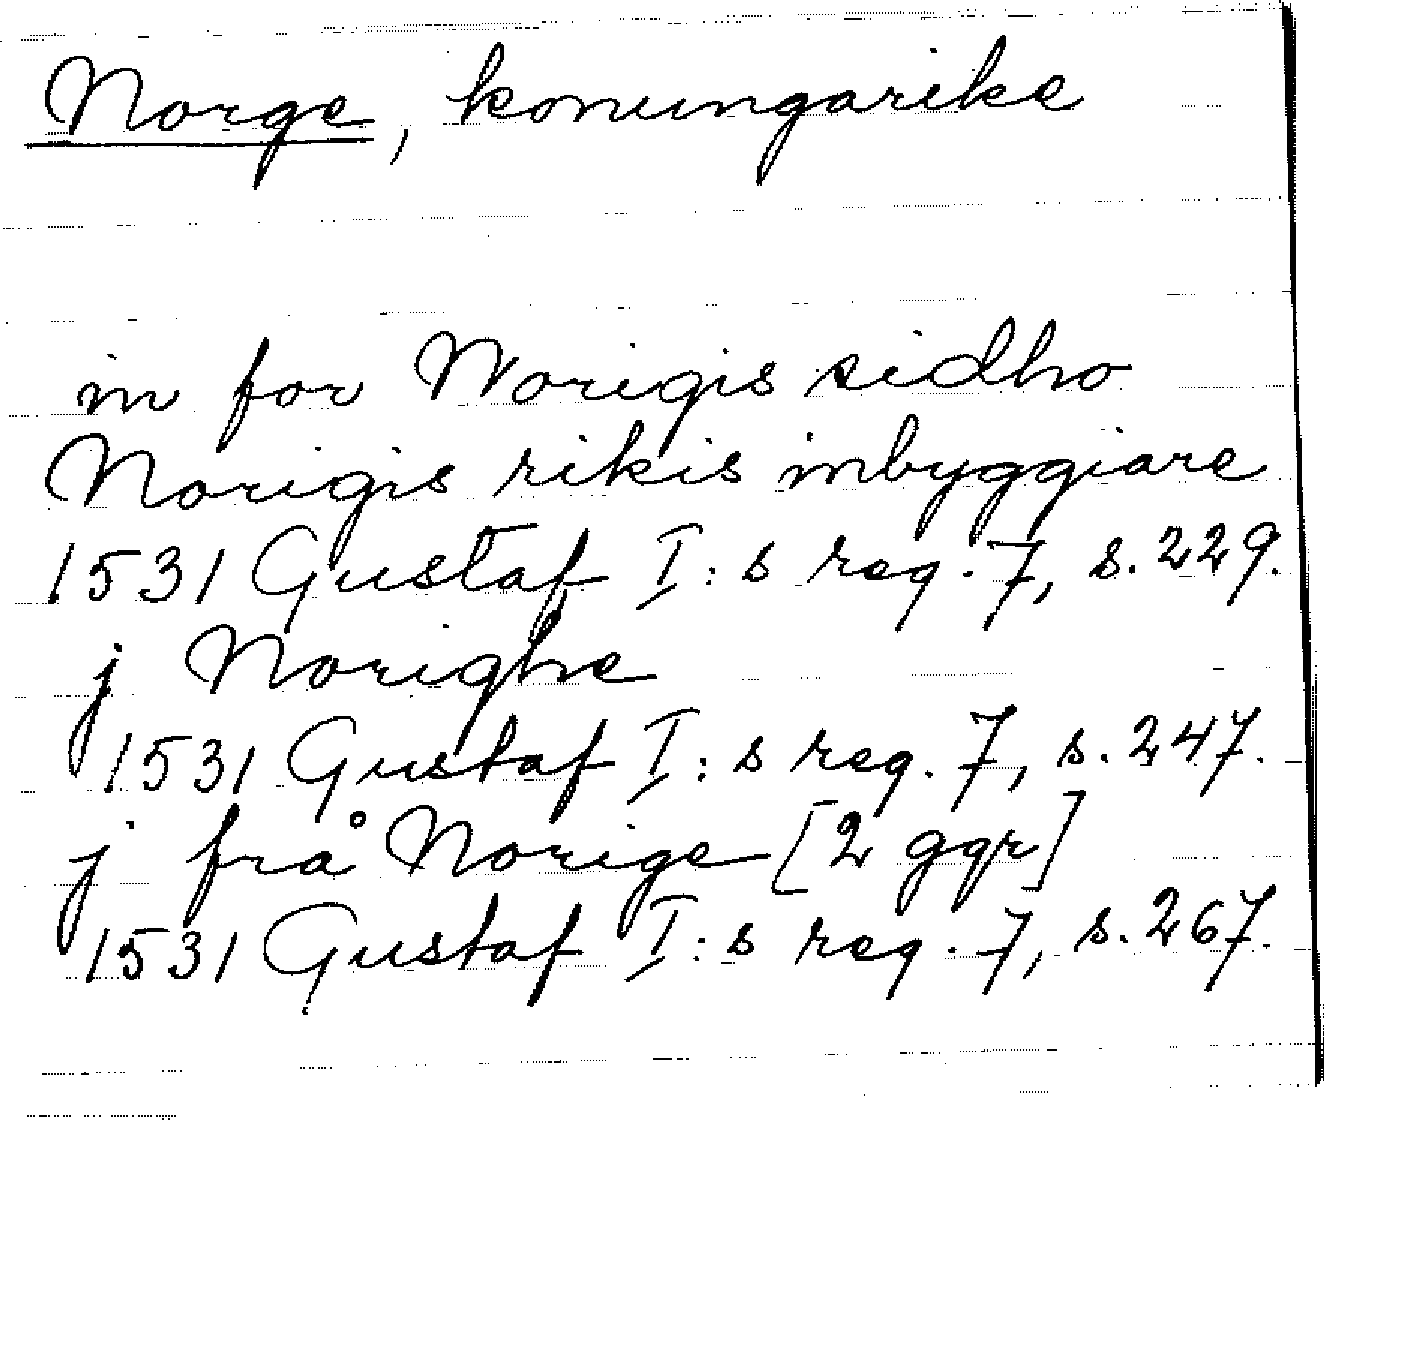 Norge, konungarike
in for Norigis sidho
Norigis rikis inbyggiare
1531 Gustaf I:s reg. 7, s. 229.
j Norighe
1531 Gustaf I:s reg. 7, s. 247.
j från Norige [2 ggr]
1531 Gustaf I:s reg. 7, s. 267.